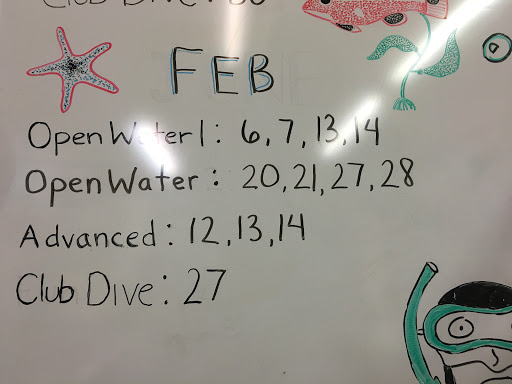 Club Dive: 30
FEB
Open Water 1: 6, 7, 13, 14
Open Water: 20, 21, 27, 28
Advanced: 12, 13, 14
Club Dive: 27